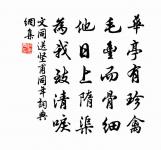 華亭有珍禽
毛而骨細
他日上隋渠
為我致清唳
文同送堅甫同年詞典
網集